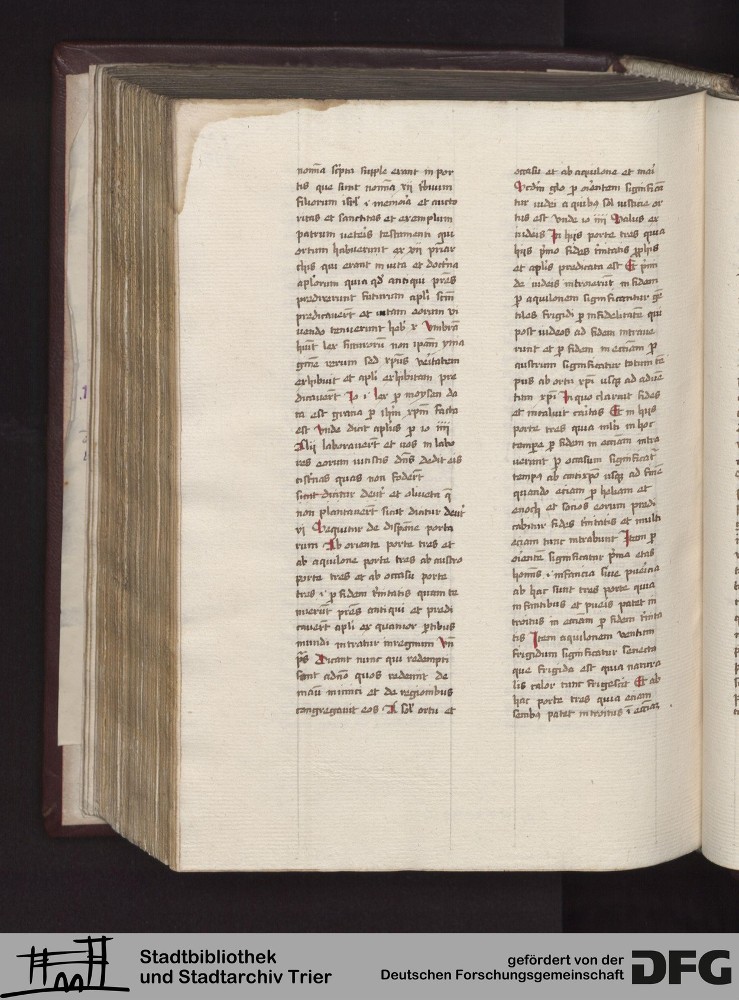 nomina scpta supple erant in por
tis que sunt nomina xii tribuum
filiorum isrl i memoria et aucto
ritas et sanctitas et exemplum
patrum veteris testamenti qui
ortum habuerunt ex xii priar
chis qui erant in vita et doctrina
aplorum quia qd antiqui pres
predixerunt futurum apli scim
predicaverunt et vitam eorum vi
vendo tenuerunt heb x Umbram
huit lex futurorum non ipam yma
ginem rerum sed xpus veritatem
exhibuit et apli exhibitam pre
dicaverunt Io i lex p moysen da
ta est gratia p ihm xpm facta
est Unde dicit aplus p io iiii
Alii laboraverunt et vos in labo
res eorum introistis dns dedit eis
cisternas quas non foderunt
sicut dicitur deut et oliveta que
non plantaverunt sicut dicitur deut
vi Sequitur de dispone porta
rum Ab oriente porte tres et
ab aquilone porte tres ab austro
porte tres et ab occasu porte
tres i p fidem trinitatis quam te
nuerunt pres antiqui et predi
caverunt apli ex quatuor partibus
mundi intratur in regnum Vn
ps Dicant nunc qui redempti
sunt a dno quos redemit de
manu inimici et de regionibus
congregavit eos A sol ortu et
occasu et ab aquilone et mari
Vel p orientem significan
tur iudei a quibus sol iusticie or
tus est Unde io iiii Salus ex
iudeis In hiis porte tres quia
hiis primo fides trinitatis prophis
et aplis predicata est Et primi
de iudeis introierunt in fidem
p aquilonem significantur gen
tiles frigidi p infidelitatem qui
post iudeos ad fidem intrave
runt et p fidem in eciam p
austrum significatur totum tem
pus ab ortu xpi usque ad adven
tum xpi In quo claruit fides
et incaluit caritas Et in hiis
porte tres quia multi in hoc
tempore p fidem in eciam intra
verunt p occasum significatur
tempus ab antixpo usque ad finem
quando eciam p heliam et
enoch et socios eorum predi
cabitur fides trinitatis et multi
eciam tunc intrabunt Item p
orientem significatur prima etas
hominis i infancia sive puericia
ab hac sunt tres porte quia
infantibus et pueris patet in
troitus in eciam p fidem trinita
tis Item aquilonem ventum
frigidum significatur senecta
que frigida est quia natura
lis calor tunc frigescit Et ab
hac porte tres quia eciam
senibus patet introitus in eciam
Stadtbibliothek
und Stadtarchiv Trier
gefördert von der
Deutschen Forschungsgemeinschaft
DFG